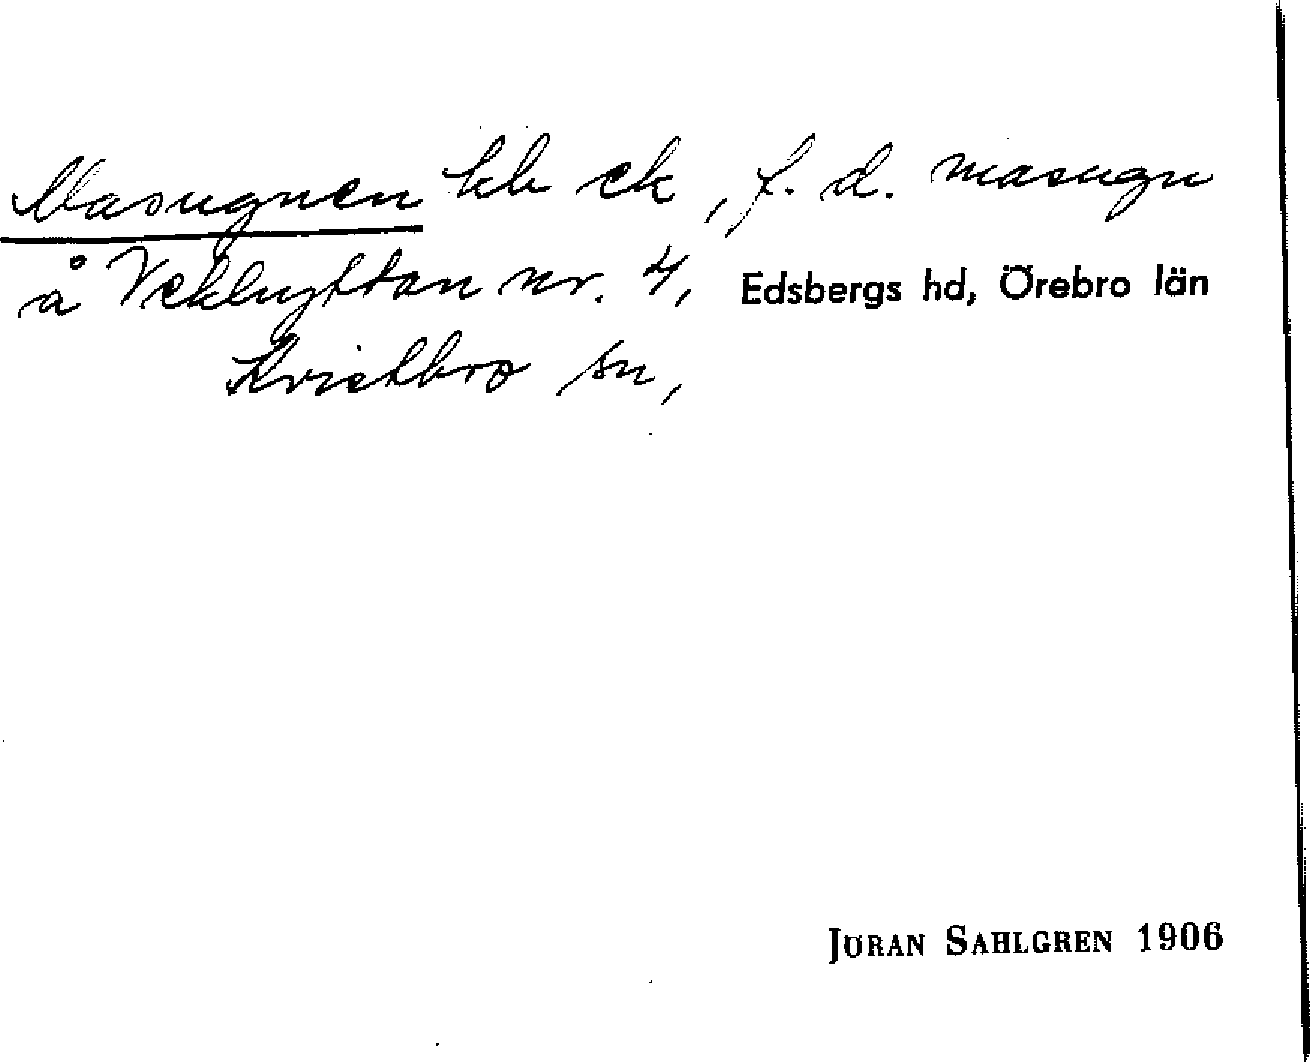 Masugnen hb ek, f. d. masugn
å Vekhyttan nr. 4, Edsbergs hd, Örebro län
Kvistbro sn,
JÖRAN SAHLGREN 1906